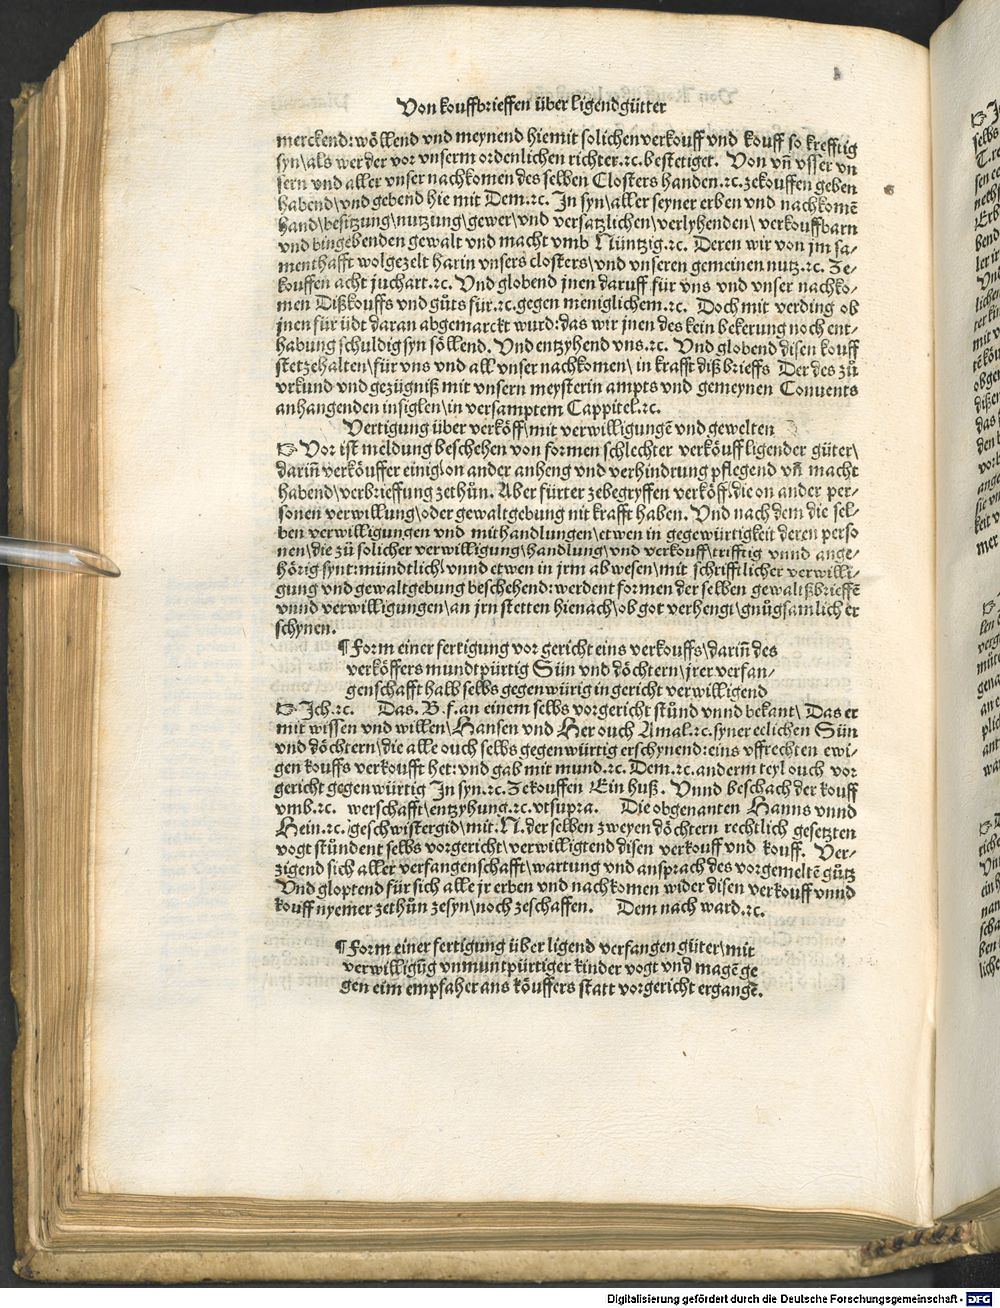 Von kouffbrieffen über ligend gütter
merckend: wöllend vnd meynend hiemit solichen verkouff vnd kouff so krefftig
syn\als wer der vor vnserm ordenlichen richter.ꝛc. bestetiget. Von vn̄ vsser vn
sern vnd aller vnser nachkomen des selben Closters handen.ꝛc. zekouffen geben
habend\vnd gebend hie mit Dem.ꝛc. In syn\aller seyner erben vnd nachkomē
hand\besitzung\nutzung\gewer\vnd versatzlichen\verlyhenden\ verkouffbarn
vnd hingebenden gewalt vnd macht vmb Nüntzig.ꝛc. Deren wir von jm sa⸗
menthafft wolgezelt har in vnsers closters\vnd vnseren gemeinen nutz.ꝛc. Ze⸗
kouffen acht juchart.ꝛc. Vnd globend jnen daruff für vns vnd vnser nachko⸗
men Dißkouffs vnd gůts für.ꝛc. gegen meniglichem.ꝛc. Doch mit verding ob
jnen für üdt daran abgemarckt wurd: das wir jnen des kein bekerung noch ent⸗
habung schuldig syn söllend. Vnd entzyhend vns.ꝛc. Vnd globend disen kouff
stetzehalten\für vns vnd all vnser nachkomen\ in krafft diß brieffs Der des zů
vrkund vnd gezügniß mit vnsern meysterin ampts vnd gemeynen Conuents
anhangenden insiglen\in versamptem Cappitel.ꝛc.
Vertigung über verköff\mit verwilligungē vnd gewelten
☞ Vor ist meldung beschehen von formen schlechter verköuff ligender güter\
darin̄ verköuffer einig\on ander anheng vnd verhindrung pflegend vn̄ macht
habend\verbrieffung zethůn. Aber fürter zebegryffen verköff.die on ander per⸗
sonen verwillung\oder gewaltgebung nit krafft haben. Vnd nach dem die sel⸗
ben verwilligungen vnd mithandlungen\etwen in gegewürtigkeit deren perso
nen\die zů solicher verwilligung\handlung\vnd verkouff\trifftig vnnd ange⸗
hörig synt: mündtlich\vnnd etwen in jrm abwesen\mit schrifftlicher verwilli⸗
gung vnd gewaltgebung beschehend: werdent formen der selben gewaltßbrieffē
vnnd verwilligungen\an jrn stetten hienach\ob got verhengt\gnůgsamlich er
schynen.
¶ Form einer fertigung vor gericht eins verkouffs\darin̄ des
verköffers mundtpürtig Sün vnd döchtern\jrer verfan⸗
genschafft halb selbs gegenwürig in gericht verwilligend
☞ Ich.ꝛc. Das. B. f. an einem selbs vor gericht stůnd vnnd bekant\ Das er
mit wissen vnd willen\Hansen vnd Her ouch Amal.ꝛc. syner eelichen Sün
vnd döchtern\die alle ouch selbs gegenwürtig erschynend: eins vffrechten ewi⸗
gen kouffs verkoufft het: vnd gab mit mund.ꝛc. Dem.ꝛc. anderm teyl ouch vor
gericht gegenwürtig In syn.ꝛc. Zekouffen Ein huß. Vnnd beschach der kouff
vmb.ꝛc. werschafft\entzyhung.ꝛc. vt supra. Die obgenanten Hanns vnnd
Hein.ꝛc. geschwistergid\mit. N. der selben zweyen döchtern rechtlich gesetzten
vogt stůndent selbs vor gericht\verwilligtend disen verkouff vnd kouff. Ver⸗
zigend sich aller verfangenschafft\wartung vnd ansprach des vorgemeltē gůtz
Vnd gloptend für sich alle jr erben vnd nachkomen wider disen verkouff vnnd
kouff nyemer zethůn zesyn\noch zeschaffen. Dem nach ward.ꝛc.
¶ Form einer fertigung über ligend verfangen güter\mit
verwilligūg vnmuntpürtiger kinder vogt vnd magē ge
gen eim empfaher ans köuffers statt vor gericht ergangē.
Digitalisierung gefördert durch die Deutsche Forschungsgemeinschaft - DFG